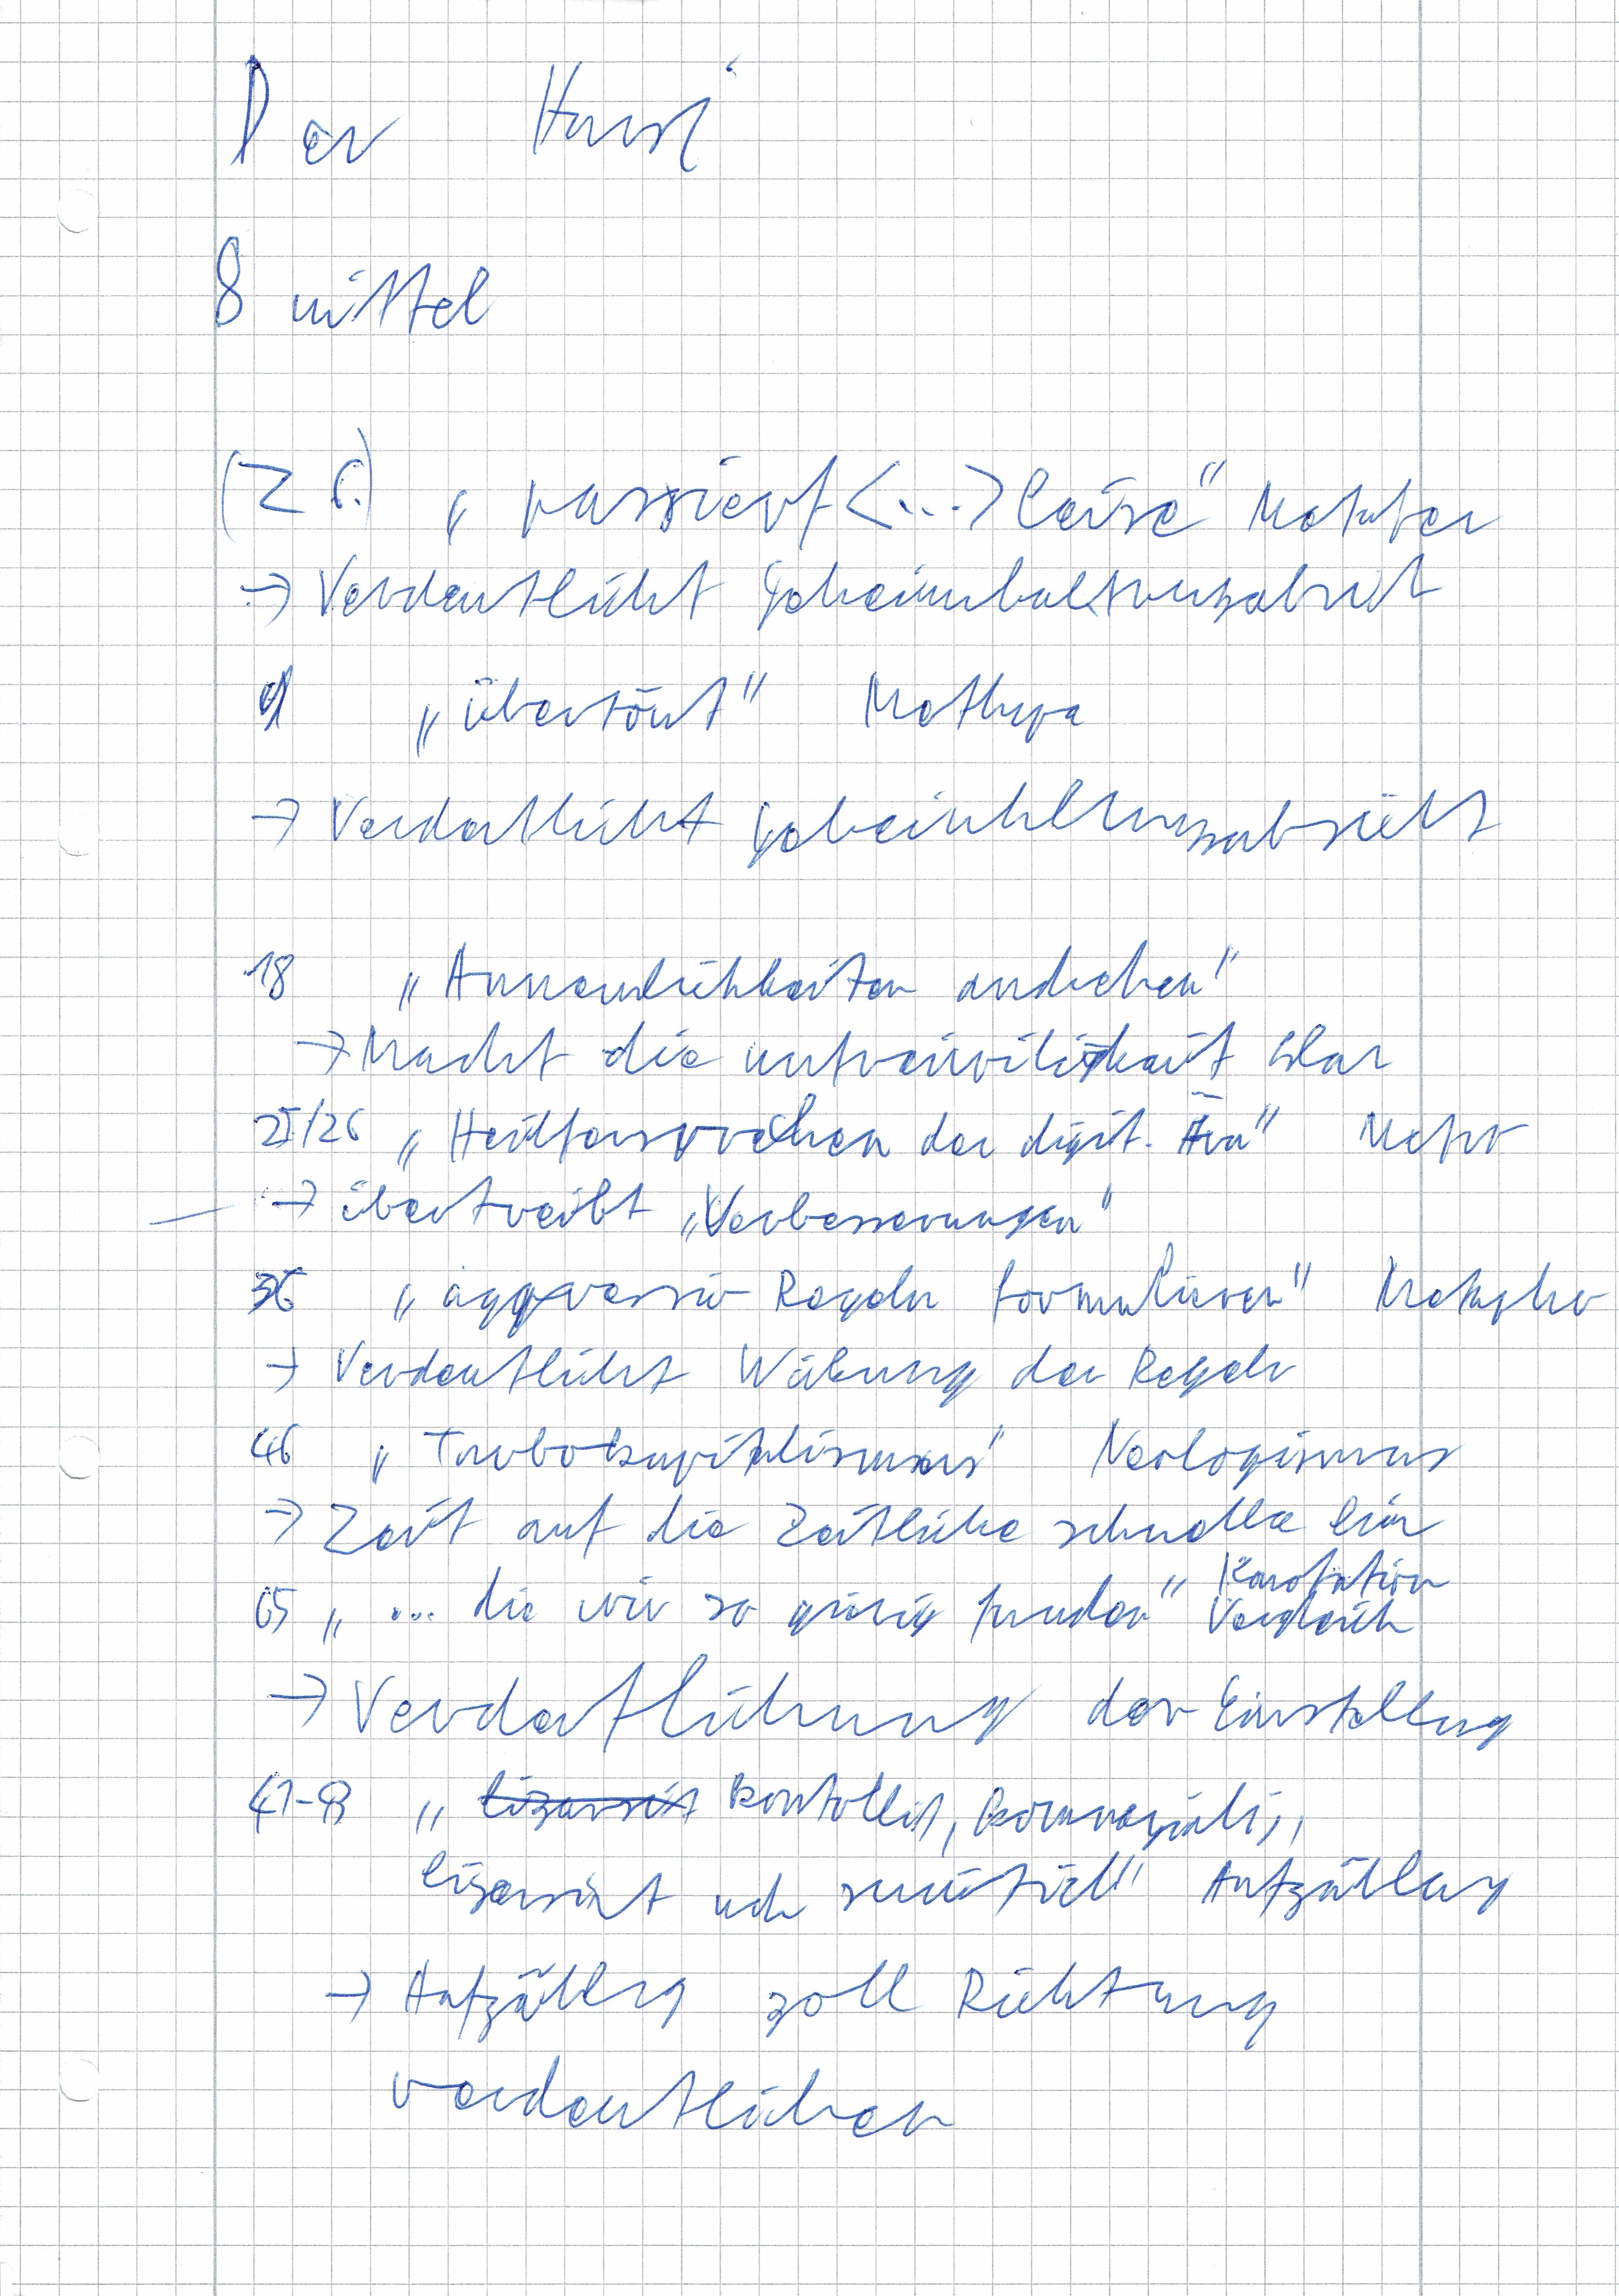 Der
8 mittel
(Z 6.) „passiert <...> leise" Metapher
→ Verdeutlicht Geheimhaltungsabsicht
9 „übertönt" Methpa
→ Verdetlicht Geheimhltungsabsicht
18 „Annemlichkeiten andrehen"
→ Macht die unfreiwilligkeit klar
25/26 „Heilfersprechen der digit. Ära" Metpr
→ übertreibt „Verbesserungen"
36 „aggressiv Regeln formulieren" Metapher
→ Verdeutlicht Wirkung der Regeln
46 „Turbokapitalismus" Neologismus
→ Zeit auf die Zeitliche schnelle hin
65 „... die wir so gierig finden" Konotation
Vergleich
→ Verdeutlichung der Einstellung
41-43 „ lizensiert kontolliert,
lizensiert und Aufzählung
→ Aufzällung soll Richtung
verdeutlichen